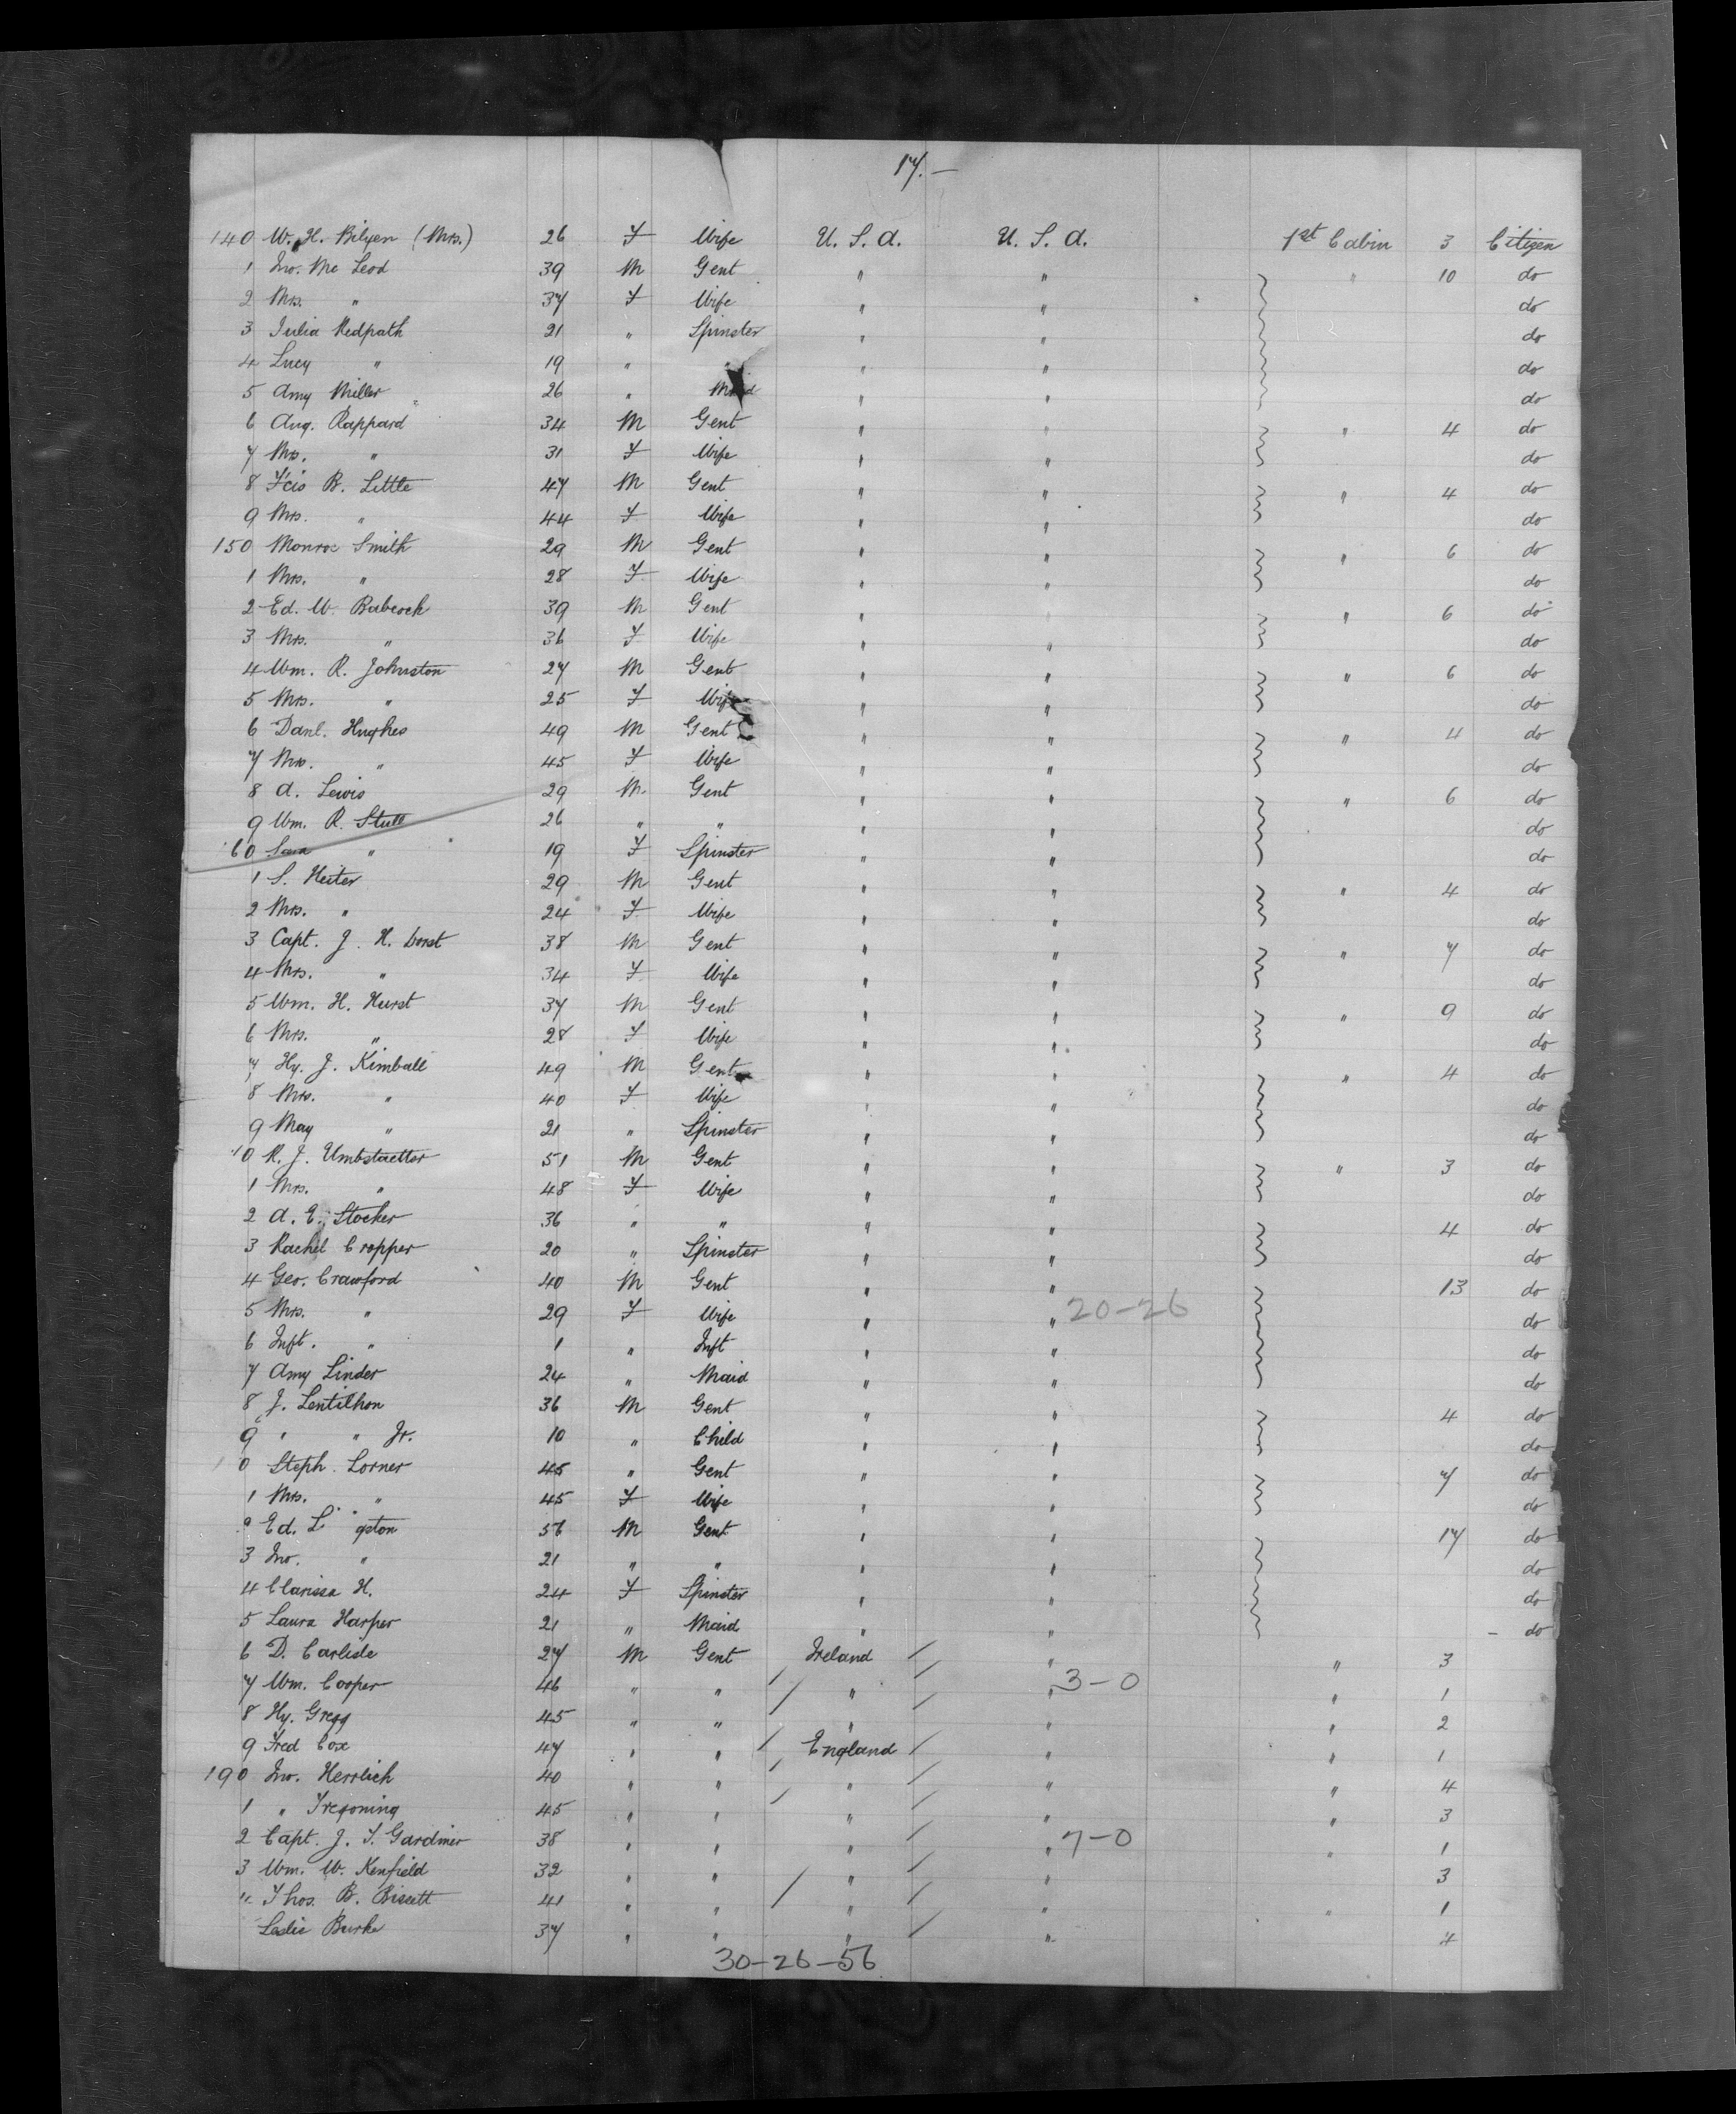 17.—
140 W. H. Bilyen (Mrs.) 26 F Wife U. S. A. U. S. A. 1st Cabin 3 Citizen
1 Jno. Mc Leod 39 M Gent " " " 10 do
2 Mrs. " 37 F Wife " " do
3 Julia Redpath 21 " Spinster " " do
4 Lucy " 19 " " " " do
5 Amy Miller 26 " Maid " " do
6 Aug. Rappard 34 M Gent " " " 4 do
7 Mrs. " 31 F Wife " " do
8 Fcis B. Little 47 M Gent " " " 4 do
9 Mrs. " 44 F Wife " " do
150 Monroe Smith 29 M Gent " " " 6 do
1 Mrs. " 28 F Wife " " do
2 Ed. W. Babcock 39 M Gent " " " 6 do
3 Mrs. " 36 F Wife " " do
4 Wm. R. Johnston 27 M Gent " " " 6 do
5 Mrs. " 25 F Wife " " do
6 Danl. Hughes 49 M Gent " " " 4 do
7 Mrs. " 45 F Wife " " do
8 A. Lewis 29 M Gent " " " 6 do
9 Wm. R. Stull 26 " " " " do
60 Sara " 19 F Spinster " " do
1 S. Heiter 29 M Gent " " " 4 do
2 Mrs. " 24 F Wife " " do
3 Capt. J. H. Dorst 38 M Gent " " " 7 do
4 Mrs. " 34 F Wife " " do
5 Wm. H. Hurst 37 M Gent " " " 9 do
6 Mrs. " 28 F Wife " " do
7 Hy. J. Kimball 49 M Gent " " " 4 do
8 Mrs. " 40 F Wife " " do
9 May " 21 " Spinster " " do
10 R. J. Umbstaetter 51 M Gent " " " 3 do
1 Mrs. " 48 F Wife " " do
2 A. E. Stocker 36 " " " " 4 do
3 Rachel Cropper 20 " Spinster " " do
4 Geo. Crawford 40 M Gent " " 13 do
5 Mrs. " 29 F Wife " " 20-26 do
6 Inft. " 1 " Inft " " do
7 Amy Linder 24 " Maid " " do
8 J. Lentilhon 36 M Gent " " 4 do
9 " " Jr. 10 " Child " " do
0 Steph. Lorner 45 " Gent " " 7 do
1 Mrs. " 45 F Wife " " do
2 Ed. Li gston 56 M Gent " " 17 do
3 Jno. " 21 " " " " do
4 Clarissa H. 24 F Spinster " " do
5 Laura Harper 21 " Maid " " - do
6 D. Carlisle 27 M Gent Ireland / " " 3
7 Wm. Cooper 46 " " / " / " 3-0 " 1
8 Hy. Gregg 45 " " / " / " " 2
9 Fred Cox 47 " " / England / " " 1
190 Jno. Herrlich 40 " " / " / " " 4
1 " Tregoning 45 " " / " / " " 3
2 Capt. J. T. Gardiner 38 " " " / " 7-0 " 1
3 Wm. W. Kenfield 32 " " " / " 3
4 Thos. B. Bissett 41 " " / " / " " 1
Leslie Burke 37 " " " / " 4
30-26-56